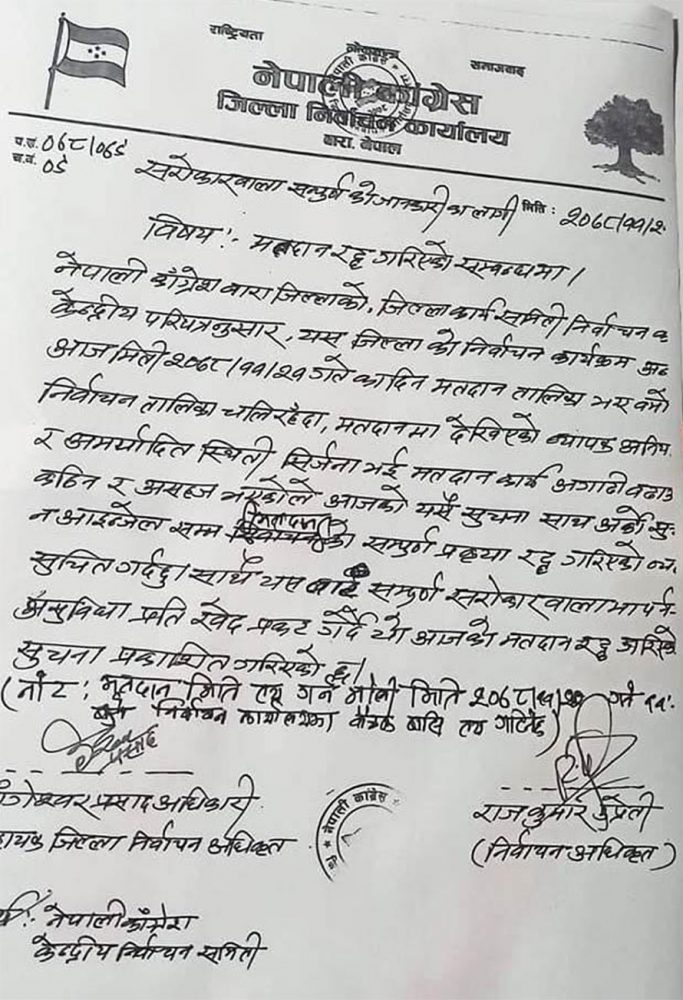 राष्ट्रियता लोकतन्त्र समाजवाद
नेपाली काँग्रेस
जिल्ला निर्वाचन कार्यालय
बारा, नेपाल
प.सं. ०६८/०६९
च.नं. ०९
मिति : २०६८/११/२
सरोकारवाला सम्पुर्ण को जानकारीका लागी
विषय :- मतदान रद्द गरिएको सम्बन्धमा।
नेपाली काँग्रेश बारा जिल्लाको, जिल्ला कार्य समिती निर्वाचन
केन्द्रीय परिपत्रनुसार, यस जिल्ला को निर्वाचन कार्यक्रम
आज मिती २०६८/११/२१ गते का दिन मतदान तालिका भए बमो
निर्वाचन तालिका चलिरहँदा, मतदानमा देखिएको व्यापक अनिय
र अमर्यादित स्थिती सिर्जना भई मतदान कार्य अगाडी बढाउ
कठिन र असहज भएकोले आजको यसै सुचना साथ अर्को सु
न आइन्जेल सम्म मतदानको सम्पुर्ण प्रकृया रद्द गरिएको
सुचित गर्दछु। साथै यस बाट सम्पुर्ण सरोकारवालामा पर्न
असुविधा प्रति खेद प्रकट गर्दै यो आजको मतदान रद्द गरिएको
सुचना प्रकाशित गरिएको छ।
(नोट : मतदान मिति तय गर्न भोली मिति २०६८/११/२२ गते ११
निर्वाचन कार्यालयका बैठक बसि तय गरिनेछ)
प्रसाद
गेश्वर प्रसाद अधिकारी
हायक जिल्ला निर्वाचन अधिकृत
नेपाली काँग्रेस
राज कुमार कुप्रेती
(निर्वाचन अधिकृत)
नेपाली काँग्रेस
केन्द्रीय निर्वाचन समिती